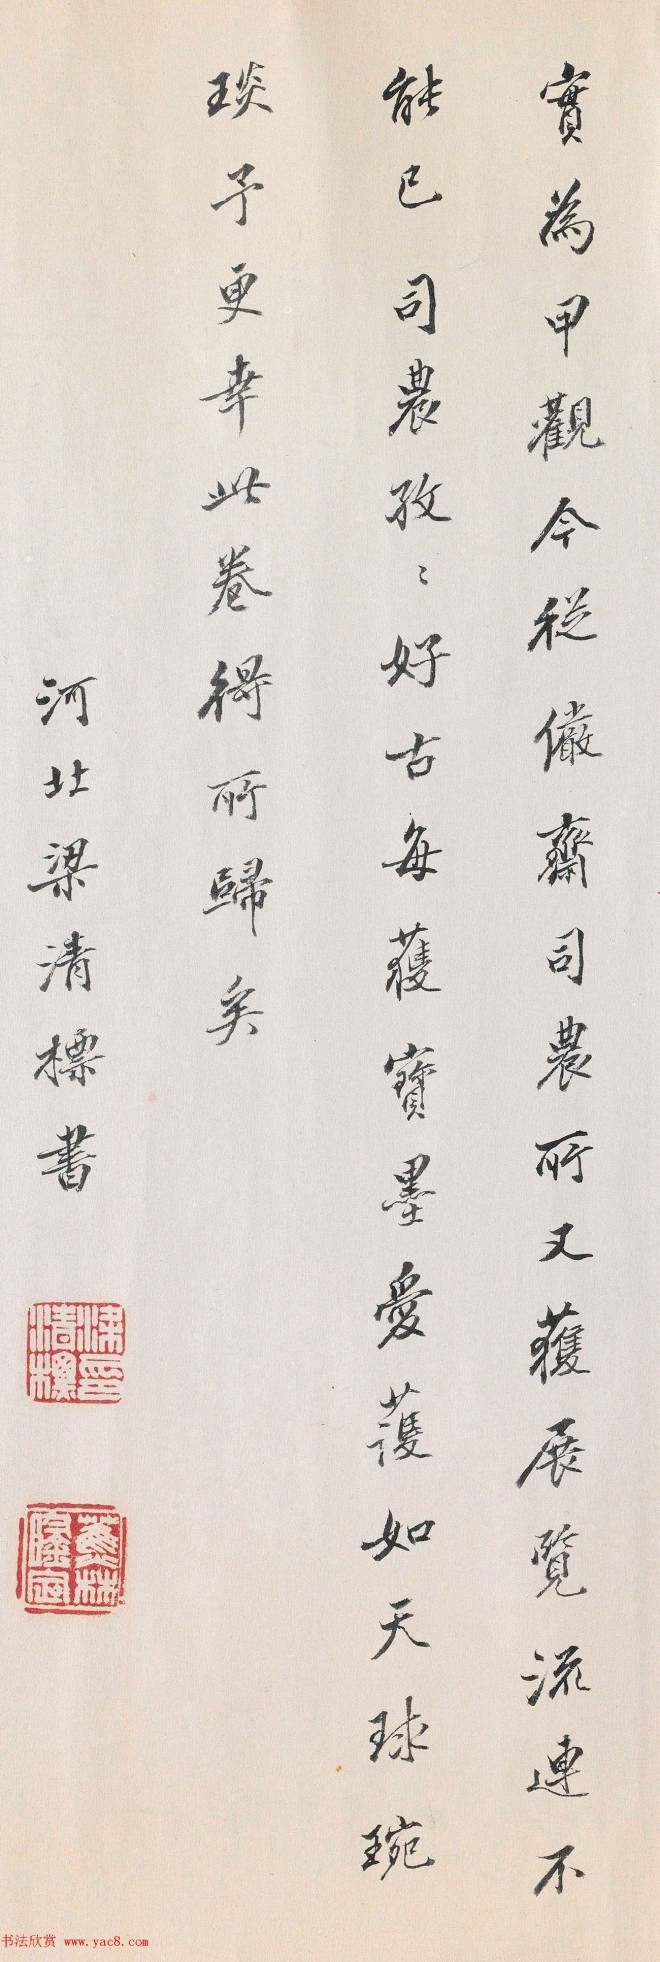 實為甲觀今從儼齋司農所又獲展覽流連不
能已司農孜〻好古每獲寶墨愛護如天球琬
琰予更幸此卷得所歸矣
河北梁清標書
梁清標印
蕉林
书法欣赏 www.yac8.com